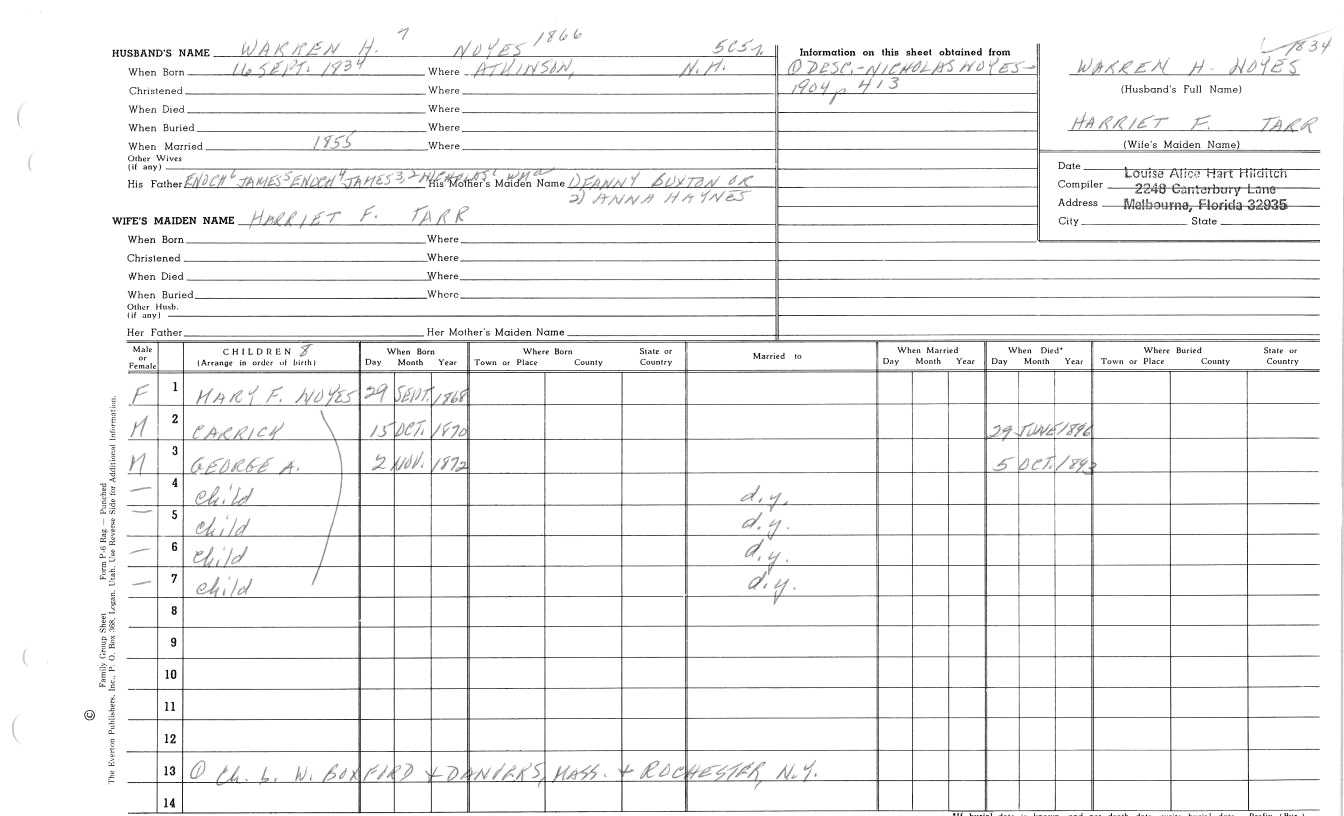 7
HUSBAND'S NAME WARREN H. NOYES 1866
Information on this sheet obtained from
1834
When Born 16 SEPT. 1834 Where ATKINSON, N.H.
① DESC.-NICHOLAS NOYES-
WARREN H. NOYES
Christened Where
1904 p 413
(Husband's Full Name)
When Died Where
When Buried Where
HARRIET F. TARR
When Married 1855 Where
(Wife's Maiden Name)
Other Wives
(if any)
Date
His Father ENOCH6 JAMES5 ENOCH4 JAMES3,2 NICHOLAS1 His Mother's Maiden Name 1) FANNY BUXTON OR
2) ANNA HAYNES
Compiler Louise Alice Hart Hilditch
2248 Canterbury Lane
Address Melbourne, Florida 32935
City State
WIFE'S MAIDEN NAME HARRIET F. TARR
When Born Where
Christened Where
When Died Where
When Buried Where
Other Husb.
(if any)
Her Father Her Mother's Maiden Name
Male or Female
CHILDREN 8
(Arrange in order of birth)
When Born
Day Month Year
Where Born
Town or Place County
State or Country
Married to
When Married
Day Month Year
When Died*
Day Month Year
Where Buried
Town or Place County
State or Country
F 1 MARY F. NOYES 29 SEPT. 1868
M 2 CARRICK 15 OCT. 1870 29 JUNE 1896
M 3 GEORGE A. 2 NOV. 1872 5 OCT. 1893
— 4 child d.y.
— 5 child d.y.
— 6 child d.y.
— 7 child d.y.
8
9
10
11
12
13 ① Ch. b. W. BOXFIRD + DANVERS, MASS. + ROCHESTER, N.Y.
14
Family Group Sheet Form P-6 Rag — Punched
© The Everton Publishers, Inc., P. O. Box 368, Logan, Utah. Use Reverse Side for Additional Information.